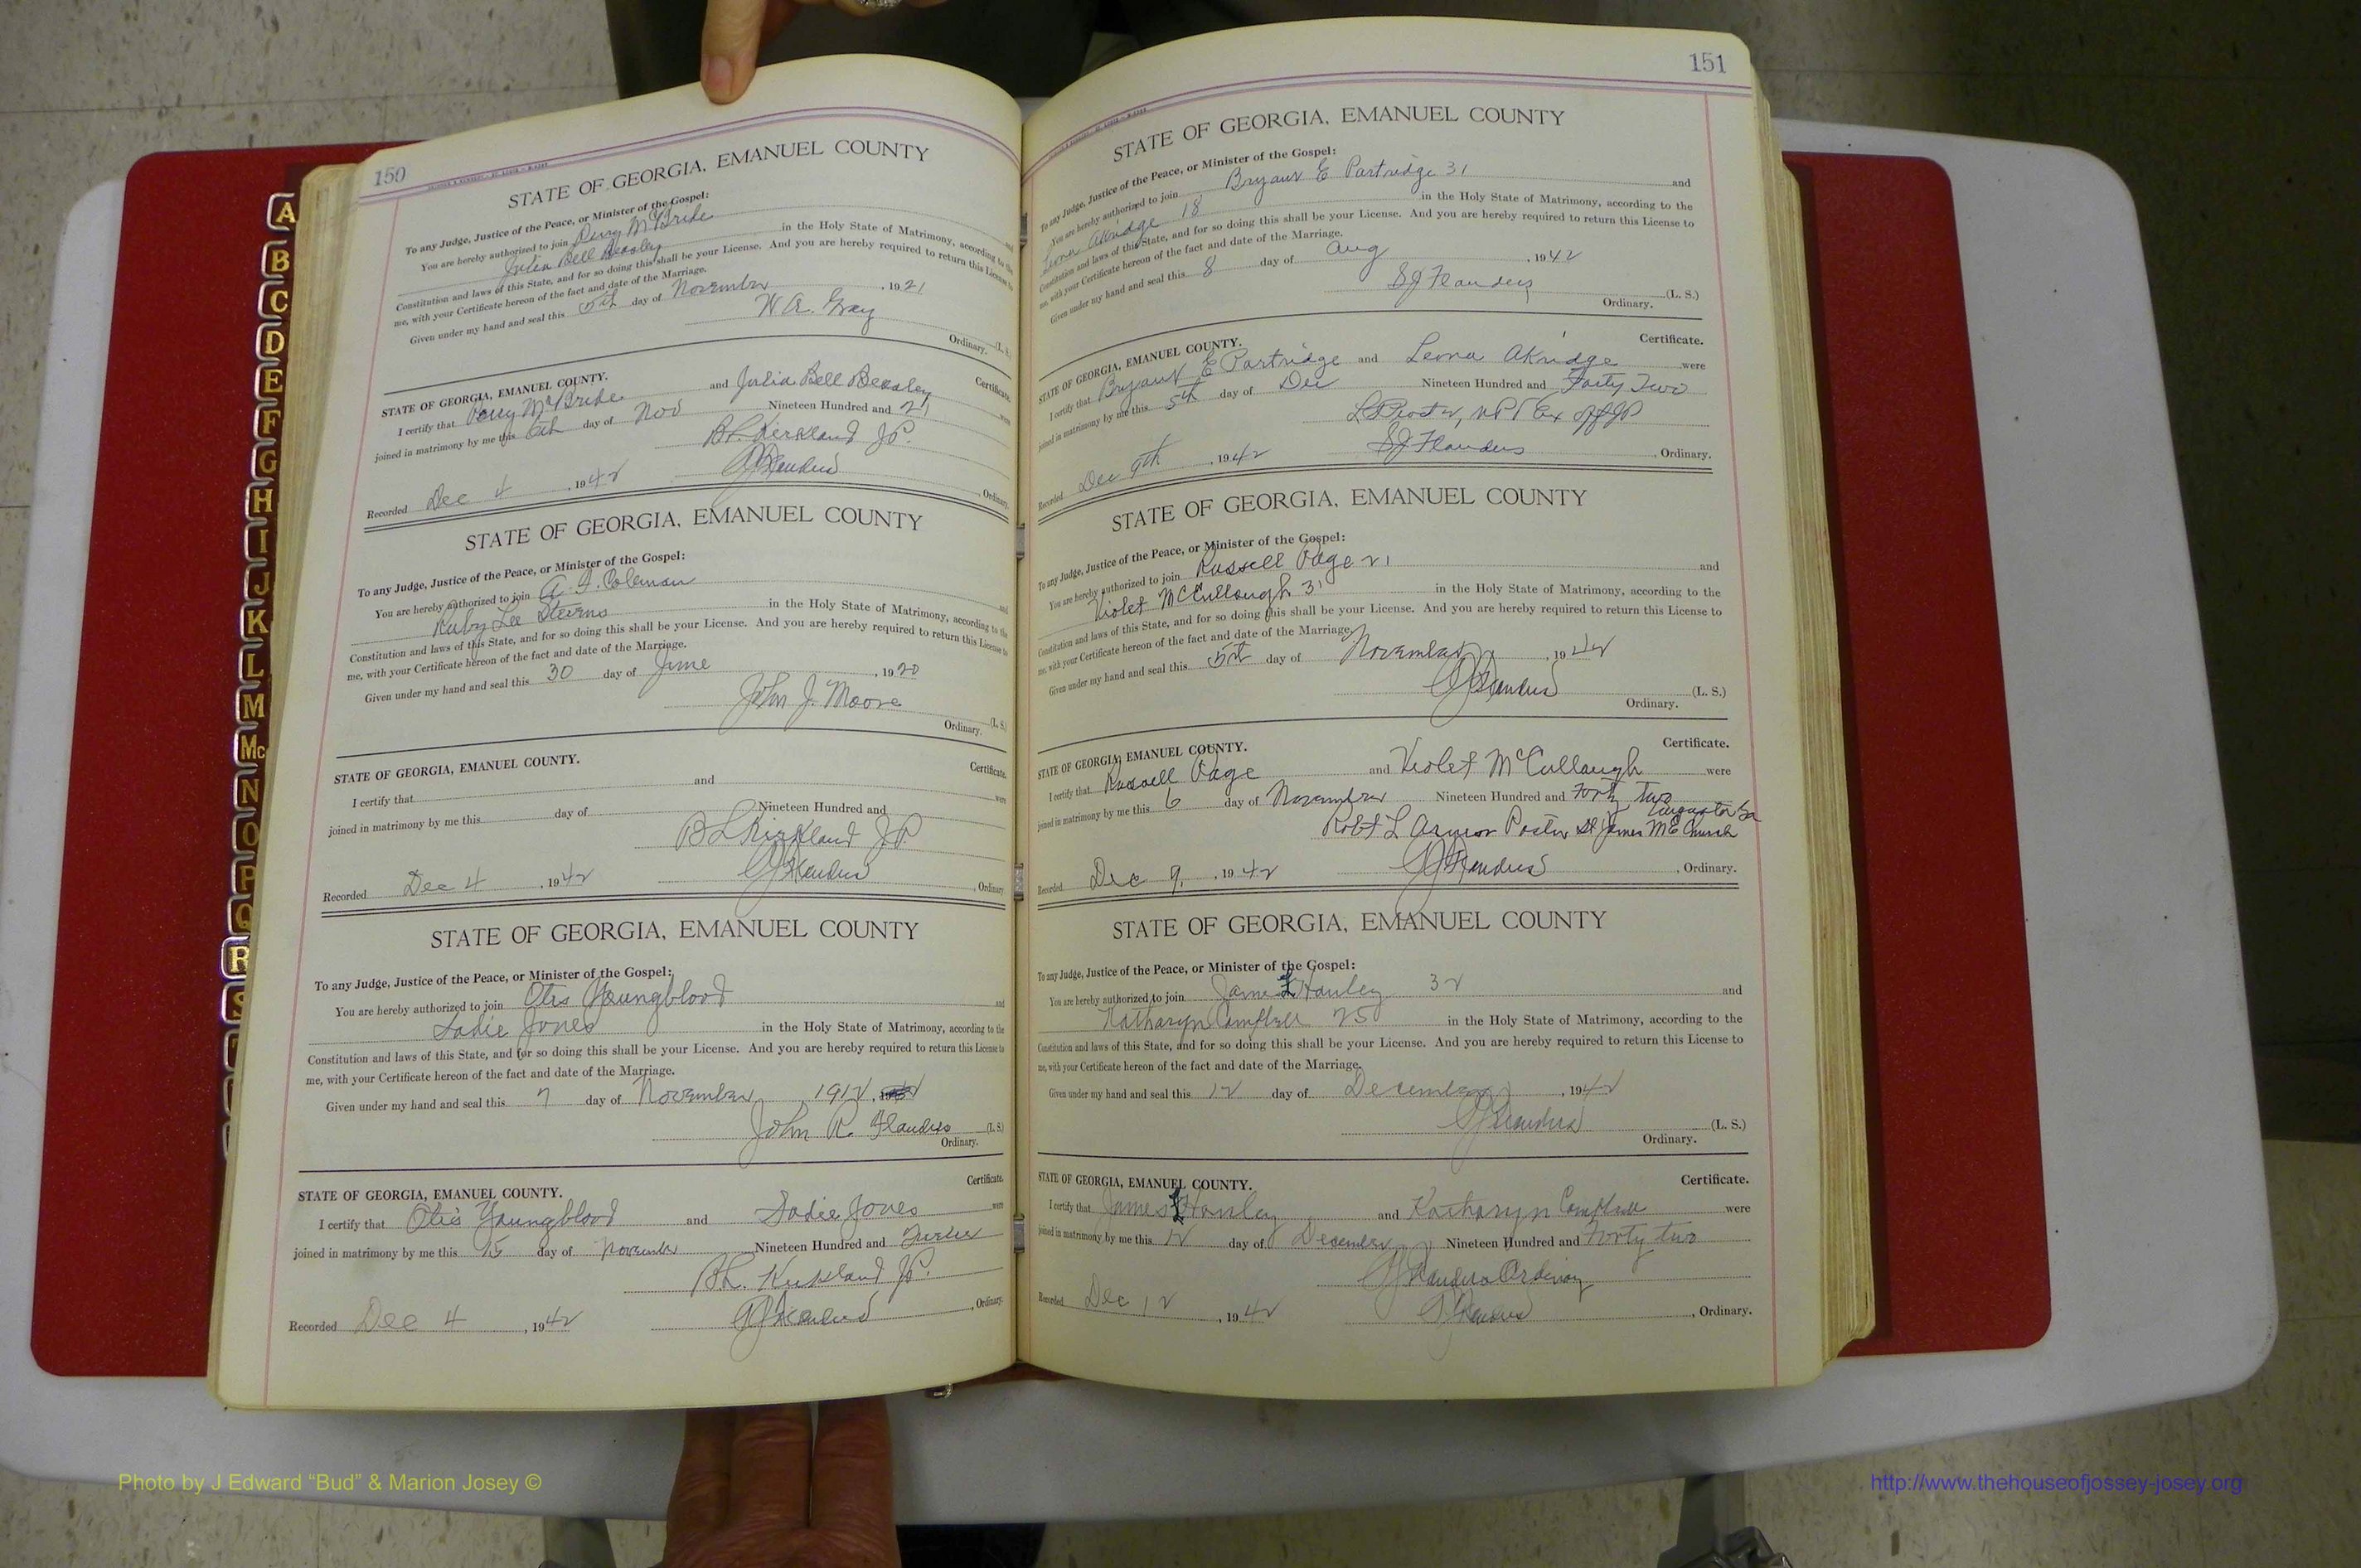 150
STATE OF GEORGIA, EMANUEL COUNTY
To any Judge, Justice of the Peace, or Minister of the Gospel:
You are hereby authorized to join Perry McBride and
Julia Bell Beasley in the Holy State of Matrimony, according to the
Constitution and laws of this State, and for so doing this shall be your License. And you are hereby required to return this License to
me, with your Certificate hereon of the fact and date of the Marriage.
Given under my hand and seal this 5th day of November, 1921
W. A. Gray (L. S.)
Ordinary.
STATE OF GEORGIA, EMANUEL COUNTY. Certificate.
I certify that Perry McBride and Julia Bell Beasley were
joined in matrimony by me this 6th day of Nov Nineteen Hundred and 21
B L Kirkland J P.
Recorded Dec 4, 1942 Flanders, Ordinary.
STATE OF GEORGIA, EMANUEL COUNTY
To any Judge, Justice of the Peace, or Minister of the Gospel:
You are hereby authorized to join Coleman and
Ruby Lee Stevens in the Holy State of Matrimony, according to the
Constitution and laws of this State, and for so doing this shall be your License. And you are hereby required to return this License to
me, with your Certificate hereon of the fact and date of the Marriage.
Given under my hand and seal this 30 day of June, 1920
John J. Moore (L. S.)
Ordinary.
STATE OF GEORGIA, EMANUEL COUNTY. Certificate.
I certify that and were
joined in matrimony by me this day of Nineteen Hundred and
B L Kirkland J P.
Recorded Dec 4, 1942 Flanders, Ordinary.
STATE OF GEORGIA, EMANUEL COUNTY
To any Judge, Justice of the Peace, or Minister of the Gospel:
You are hereby authorized to join Otis Youngblood and
Sadie Jones in the Holy State of Matrimony, according to the
Constitution and laws of this State, and for so doing this shall be your License. And you are hereby required to return this License to
me, with your Certificate hereon of the fact and date of the Marriage.
Given under my hand and seal this 7 day of November 1912
John R. Flanders (L. S.)
Ordinary.
Certificate.
STATE OF GEORGIA, EMANUEL COUNTY.
I certify that Otis Youngblood and Sadie Jones were
joined in matrimony by me this 15 day of November Nineteen Hundred and Twelve
B L. Kirkland J P.
Recorded Dec 4, 1942 Flanders, Ordinary.
151
STATE OF GEORGIA, EMANUEL COUNTY
To any Judge, Justice of the Peace, or Minister of the Gospel:
You are hereby authorized to join Bryant E Partridge 31 and
Leona Akridge 18 in the Holy State of Matrimony, according to the
Constitution and laws of this State, and for so doing this shall be your License. And you are hereby required to return this License to
me, with your Certificate hereon of the fact and date of the Marriage.
Given under my hand and seal this 8 day of Aug, 1942
S J Flanders (L. S.)
Ordinary.
Certificate.
STATE OF GEORGIA, EMANUEL COUNTY.
I certify that Bryant E Partridge and Leona Akridge were
joined in matrimony by me this 5th day of Dec Nineteen Hundred and Forty Two
Ex off JP
Recorded Dec 9th, 1942 S J Flanders, Ordinary.
STATE OF GEORGIA, EMANUEL COUNTY
To any Judge, Justice of the Peace, or Minister of the Gospel:
You are hereby authorized to join Russell Page 21 and
Violet McCullough 31 in the Holy State of Matrimony, according to the
Constitution and laws of this State, and for so doing this shall be your License. And you are hereby required to return this License to
me, with your Certificate hereon of the fact and date of the Marriage.
Given under my hand and seal this 5th day of November, 1942
Flanders (L. S.)
Ordinary.
Certificate.
STATE OF GEORGIA, EMANUEL COUNTY.
I certify that Russell Page and Violet McCullough were
joined in matrimony by me this 6 day of November Nineteen Hundred and Forty Two
Augusta Ga
Robt L Armor Pastor St James M E Church
Recorded Dec 9, 1942 Flanders, Ordinary.
STATE OF GEORGIA, EMANUEL COUNTY
To any Judge, Justice of the Peace, or Minister of the Gospel:
You are hereby authorized to join James L Hanley 32 and
Katharyn Campbell 25 in the Holy State of Matrimony, according to the
Constitution and laws of this State, and for so doing this shall be your License. And you are hereby required to return this License to
me, with your Certificate hereon of the fact and date of the Marriage.
Given under my hand and seal this 12 day of December, 1942
Flanders (L. S.)
Ordinary.
STATE OF GEORGIA, EMANUEL COUNTY. Certificate.
I certify that James L Hanley and Katharyn Campbell were
joined in matrimony by me this 12 day of December Nineteen Hundred and Forty two
Flanders Ordinary
Recorded Dec 12, 1942 Flanders, Ordinary.
A
B
C
D
E
F
G
H
I
J
K
L
M
Mc
N
O
P
Q
R
S
T
Photo by J Edward “Bud” & Marion Josey ©
http://www.thehouseofjossey-josey.org